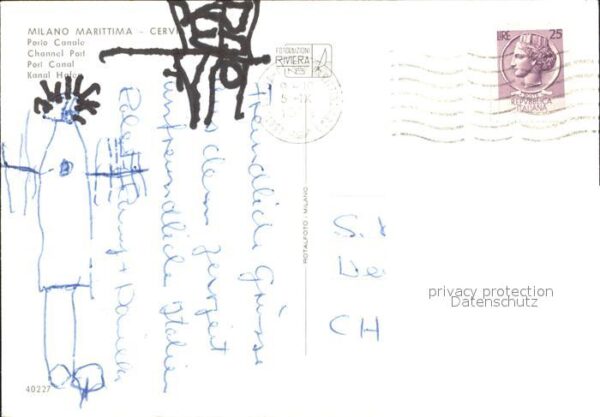 MILANO MARITTIMA - CERVI
Porto Canale
Channel Port
Port Canal
Kanal Hafen
FOTOEDIZIONI
RIVIERA
LIRE 25
REPUBBLICA
ITALIANA
Freundliche Grüsse
aus dem zerzeit
unfreundlichen Italien
ROTALFOTO - MILANO
S.
De
CH
privacy protection
Datenschutz
40227